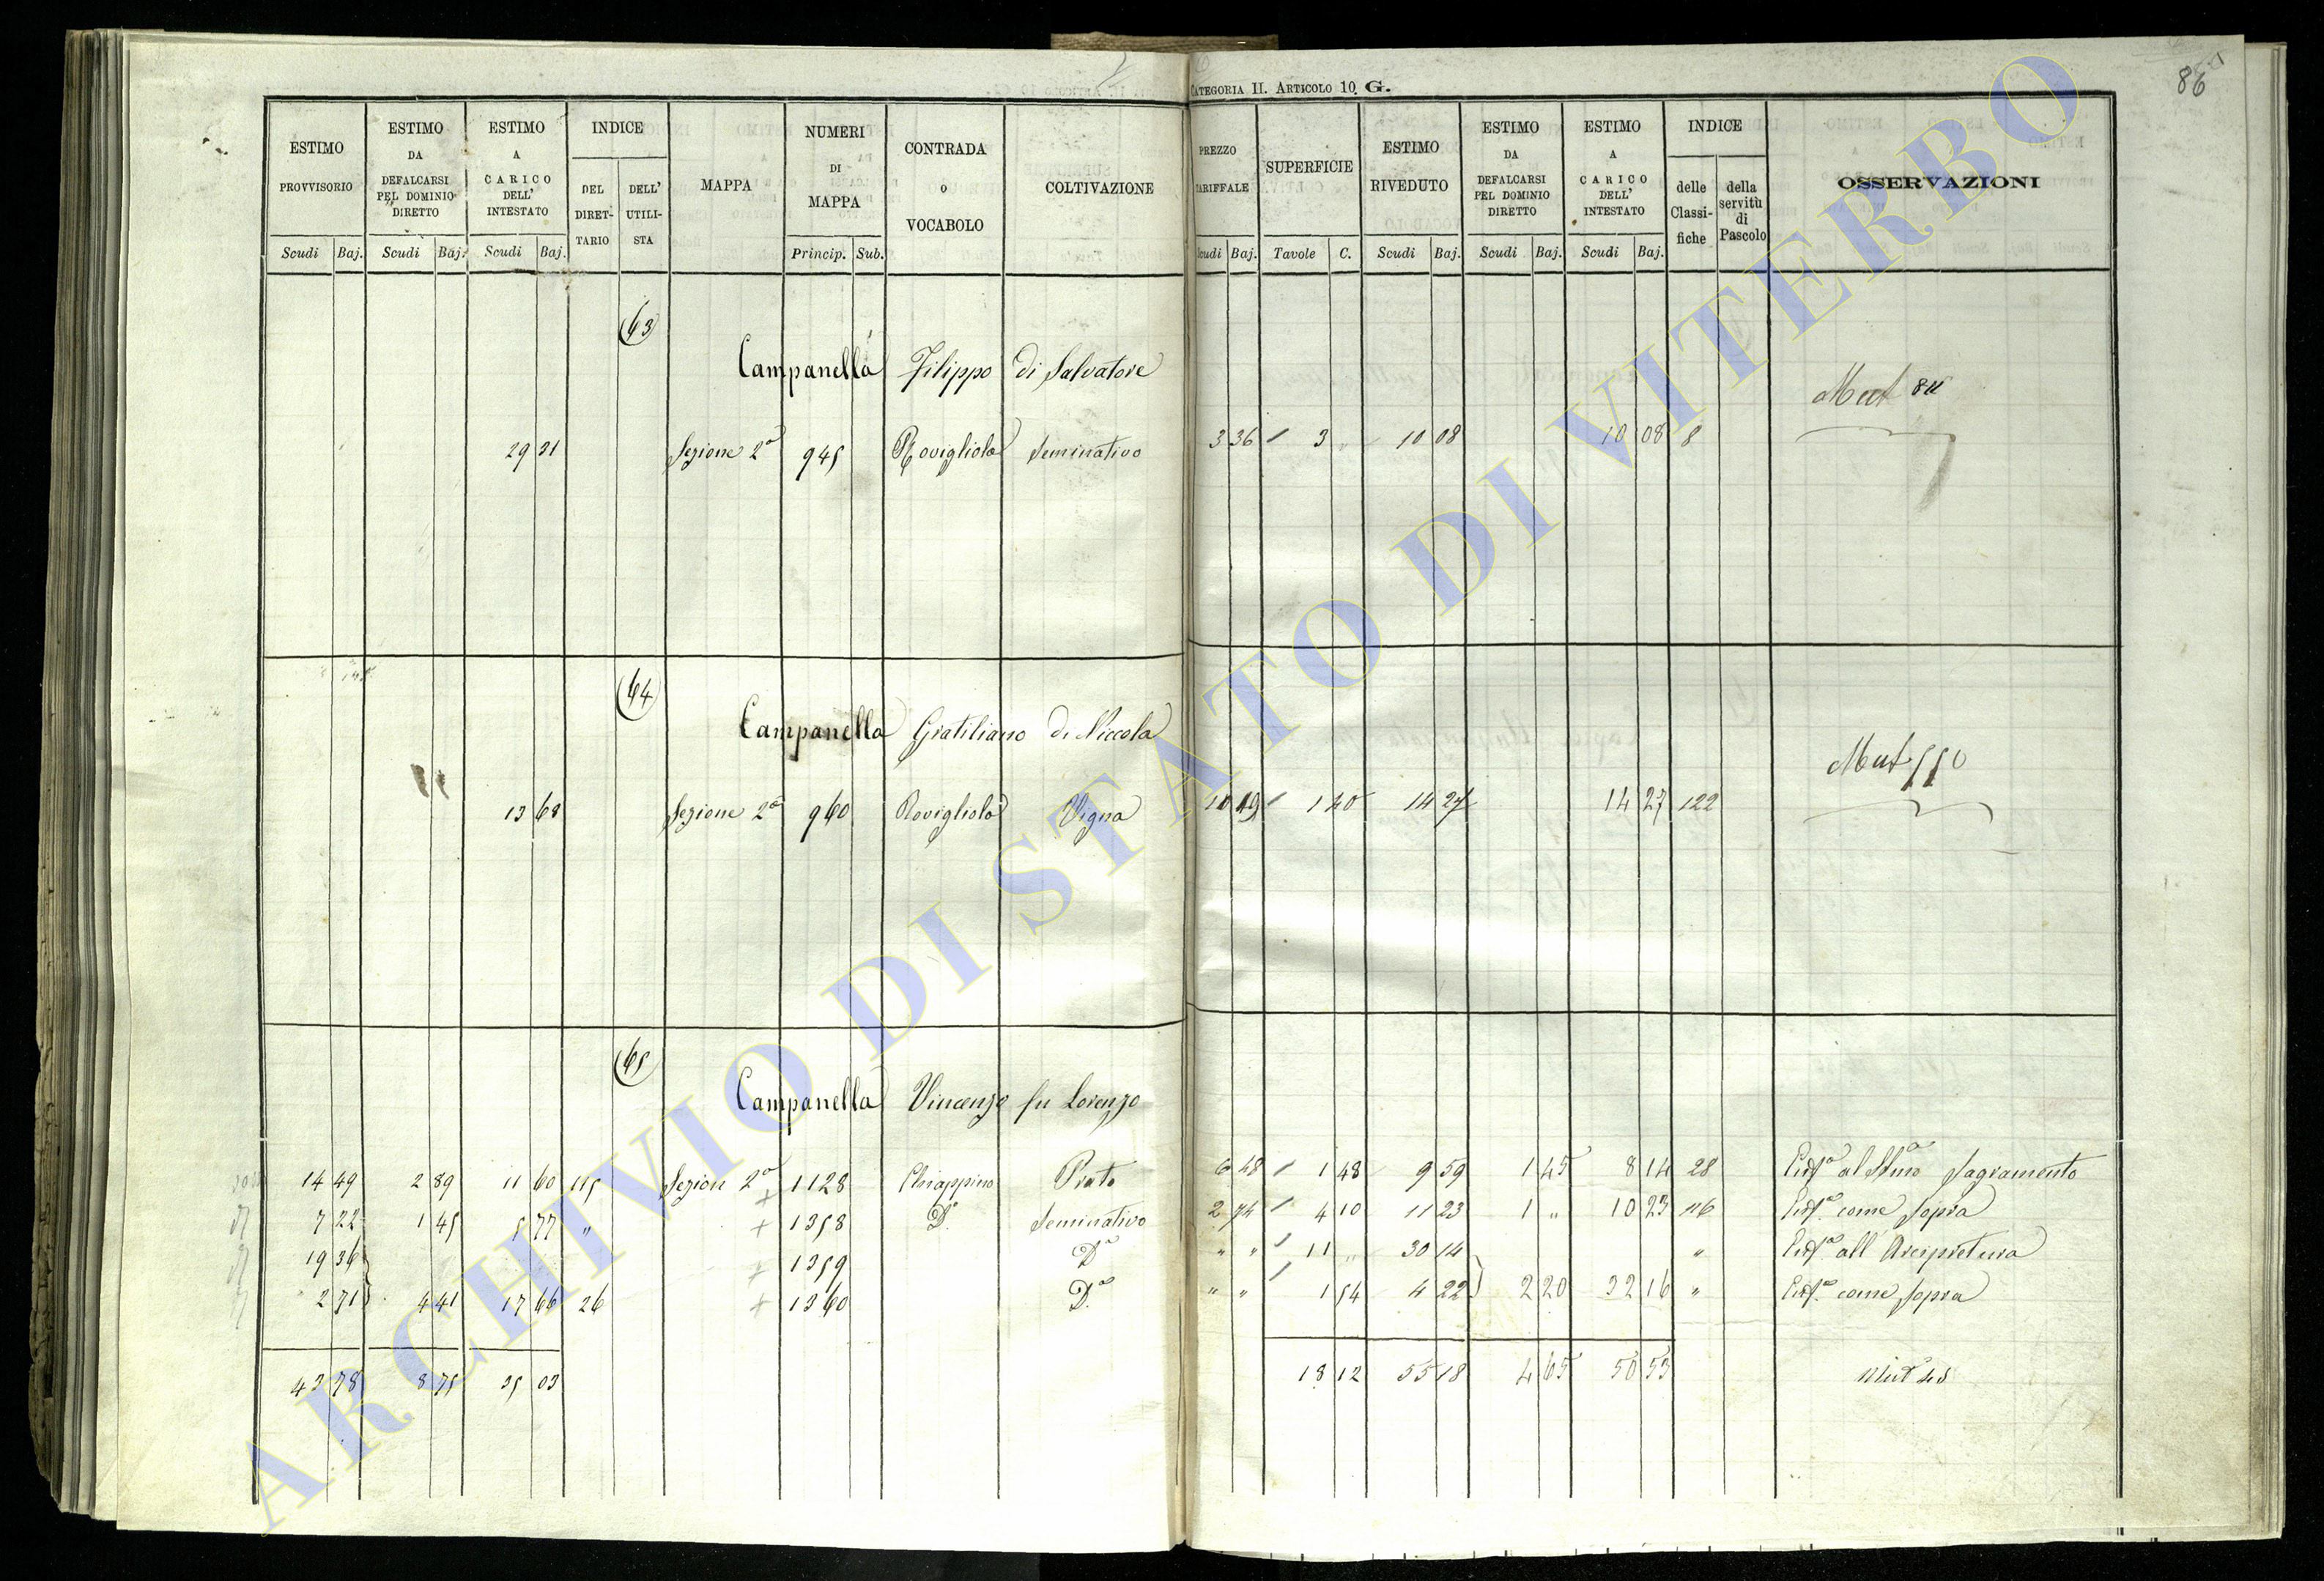 CATEGORIA II. ARTICOLO 10. G.
86
ESTIMO PROVVISORIO
ESTIMO DA DEFALCARSI PEL DOMINIO DIRETTO
ESTIMO A CARICO DELL' INTESTATO
INDICE
DEL DIRETTARIO
DELL' UTILISTA
MAPPA
NUMERI DI MAPPA
CONTRADA o VOCABOLO
COLTIVAZIONE
PREZZO TARIFFALE
SUPERFICIE
ESTIMO RIVEDUTO
ESTIMO DA DEFALCARSI PEL DOMINIO DIRETTO
ESTIMO A CARICO DELL' INTESTATO
INDICE
delle Classifiche
della servitù di Pascolo
OSSERVAZIONI
Scudi Baj. Scudi Baj. Scudi Baj. Princip. Sub. Scudi Baj. Tavole C. Scudi Baj. Scudi Baj. Scudi Baj.
63
Campanella Filippo di Salvatore
Mut
29 31 Sezione 2a 945 Rovigliola Seminativo 3 36 3 " 10 08 10 08 8
64
Campanella Gratiliano di Niccola
Mut 550
13 68 Sezione 2a 960 Rovigliola Vigna 10 19 1 40 14 27 14 27 122
65
Campanella Vincenzo fu Lorenzo
14 49 2 89 11 60 115 Sezion 2a 1128 Chiappino Prato 6 48 1 48 9 59 1 45 8 14 28 Enfa al SSmo Sagramento
7 22 1 45 5 77 " 1358 Do Seminativo 2 74 4 10 11 23 1 " 10 23 116 Enfa come sopra
19 36 1359 Do " " 11 " 30 14 " Enfa all' Arcipretura
2 71 4 41 17 66 26 1360 Do " " 1 54 4 22 2 20 32 16 " Enfa come sopra
43 78 8 75 35 03 18 12 55 18 4 65 50 53
ARCHIVIO DI STATO DI VITERBO